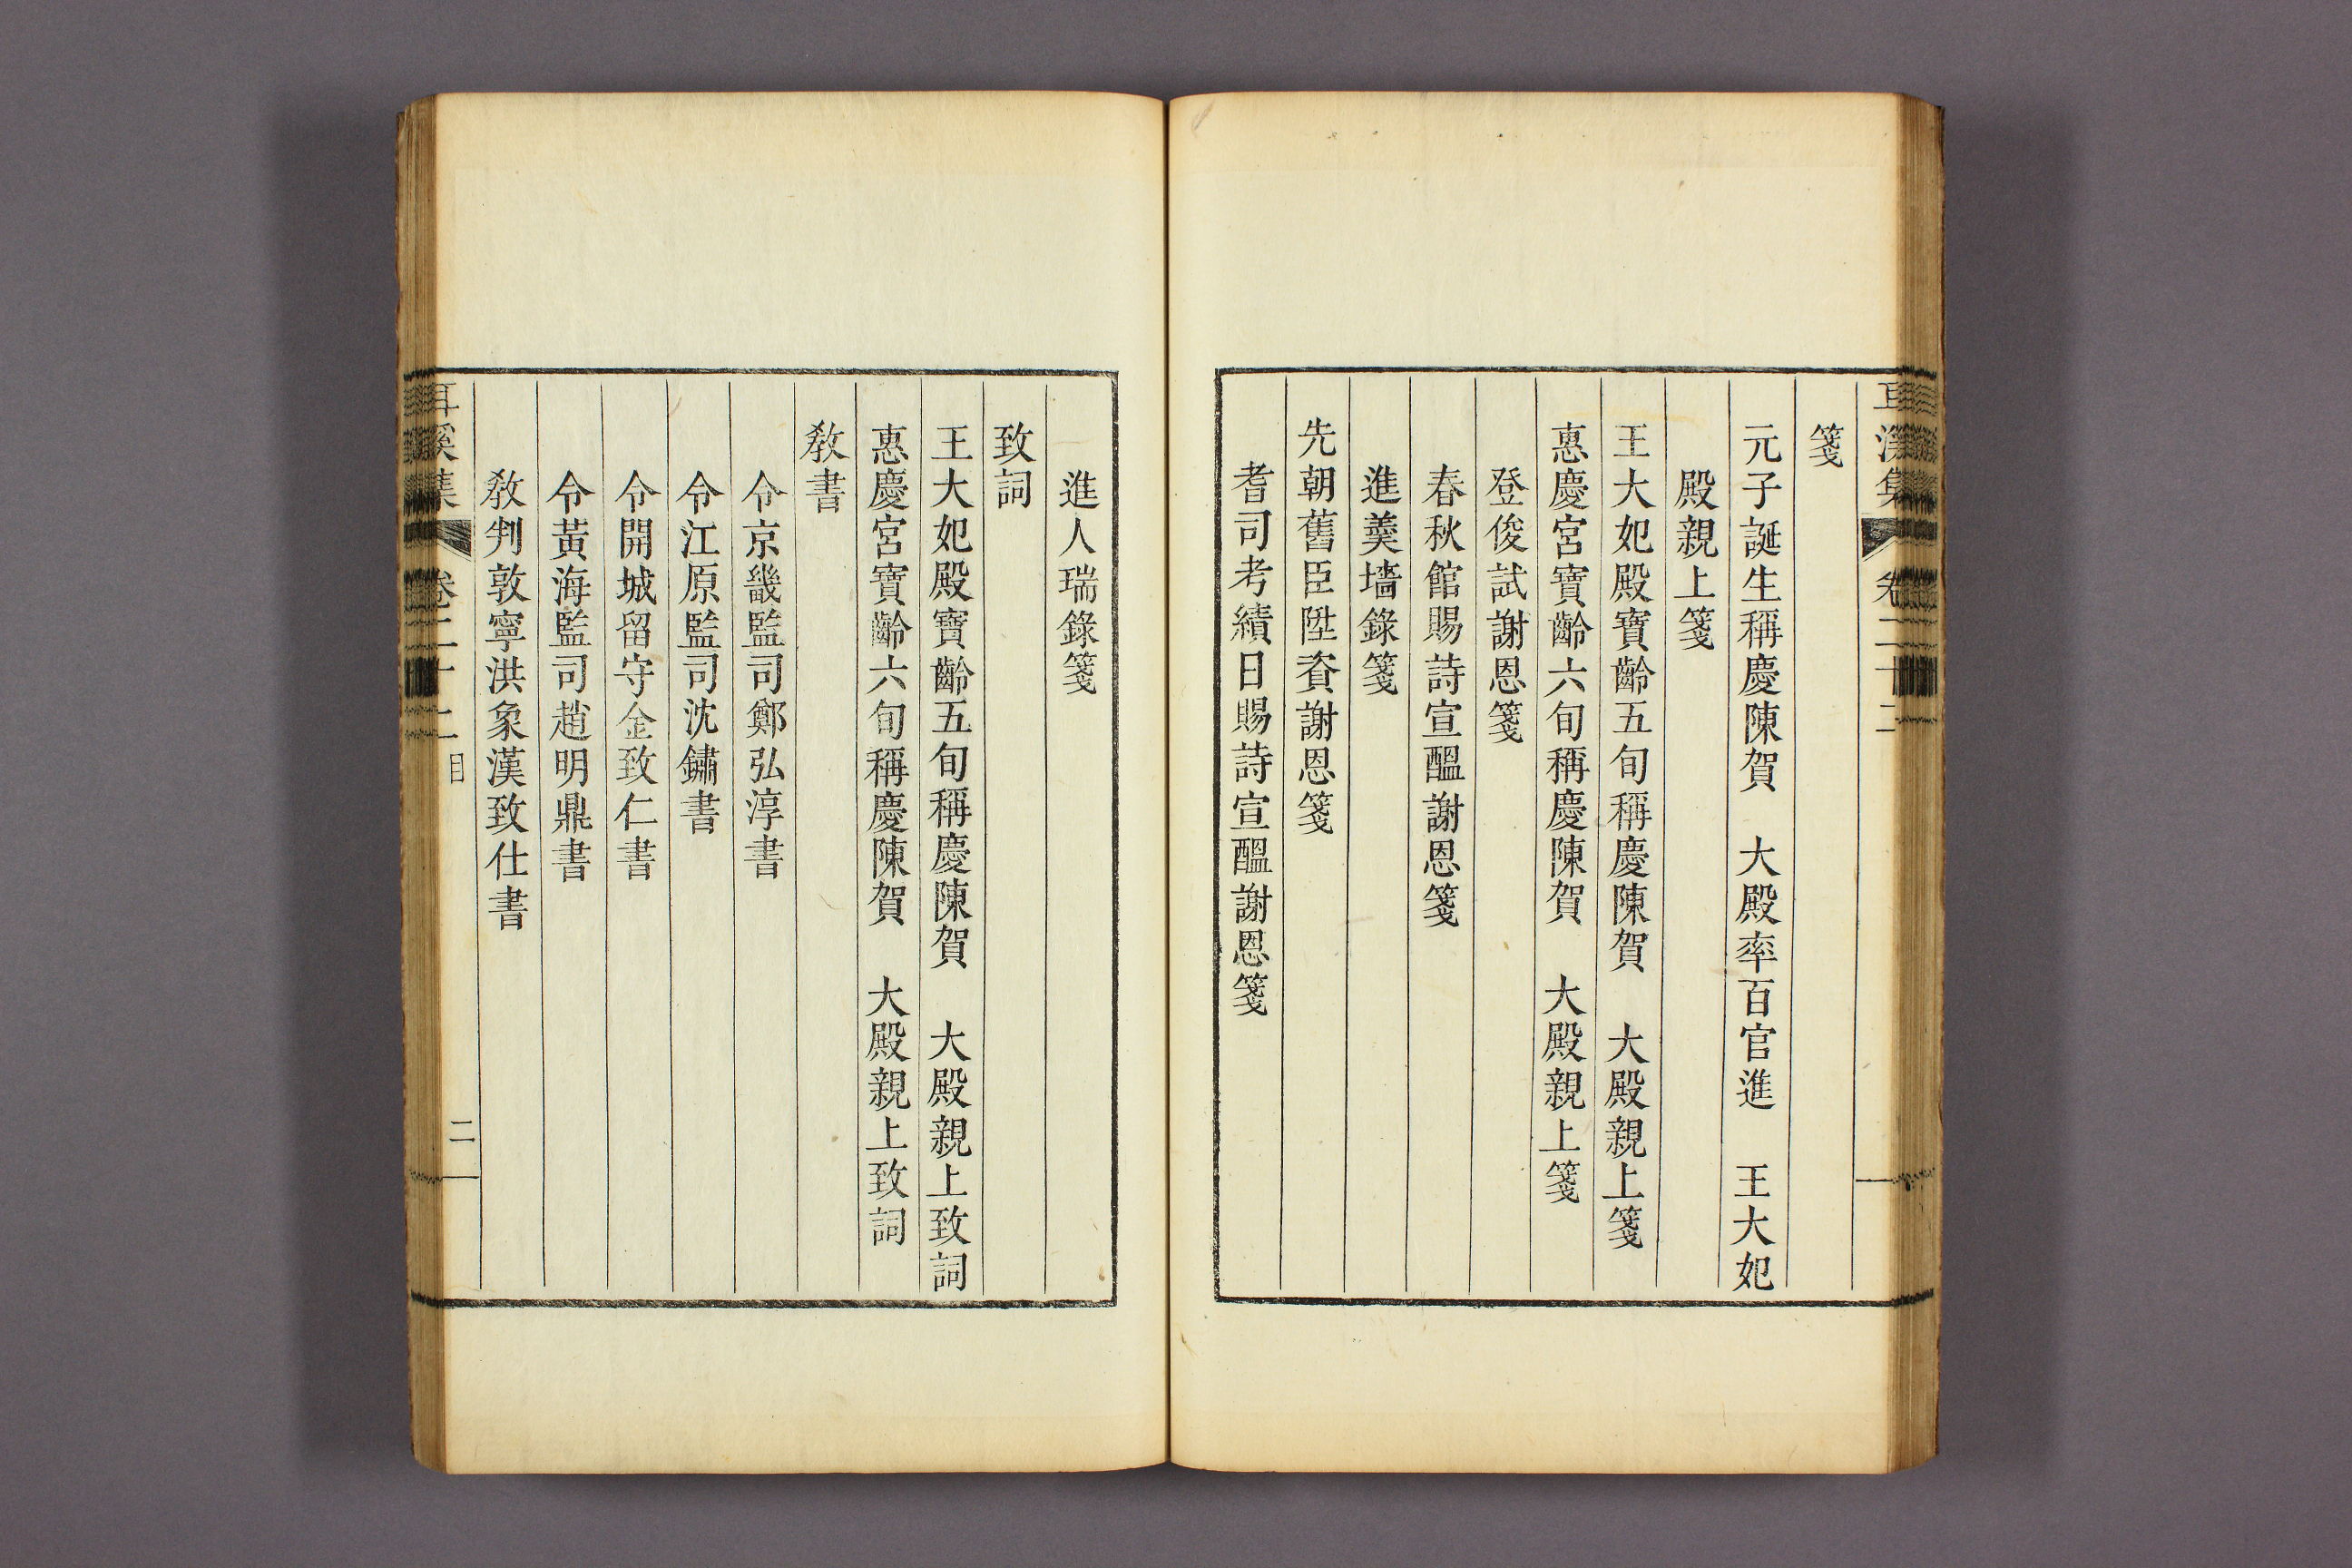 耳溪集 卷二十二
箋
元子誕生稱慶陳賀 大殿率百官進 王大妃
殿親上箋
王大妃殿寶齡五旬稱慶陳賀 大殿親上箋
惠慶宮寶齡六旬稱慶陳賀 大殿親上箋
登俊試謝恩箋
春秋館賜詩宣醞謝恩箋
進羹墻錄箋
先朝舊臣陞資謝恩箋
耆司考績日賜詩宣醞謝恩箋
進人瑞錄箋
致詞
王大妃殿寶齡五旬稱慶陳賀 大殿親上致詞
惠慶宮寶齡六旬稱慶陳賀 大殿親上致詞
敎書
令京畿監司鄭弘淳書
令江原監司沈鏽書
令開城留守金致仁書
令黃海監司趙明鼎書
敎判敦寧洪象漢致仕書
耳溪集 卷二十二 目 二